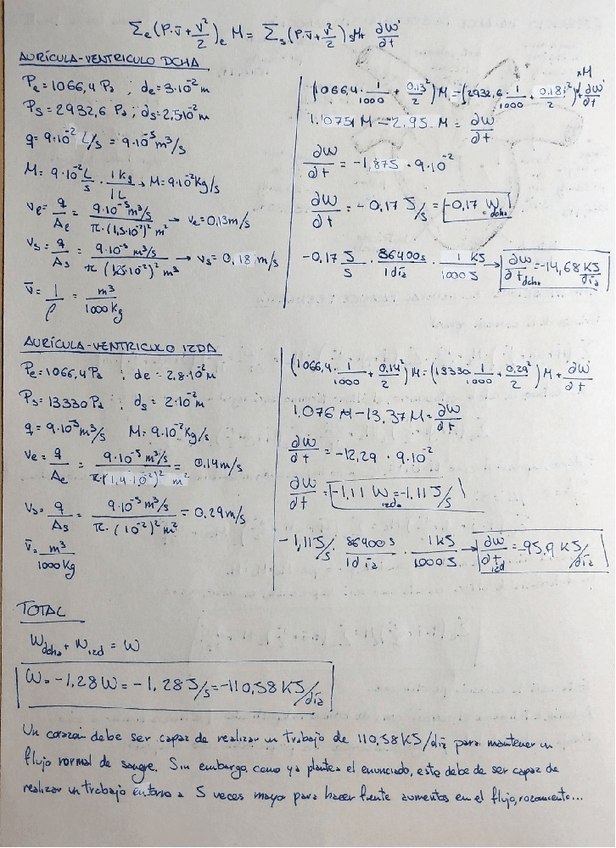 Σe(P·v̄+v²/2)e M = Σs(P·v̄+v²/2)s M + ∂W/∂t
AURÍCULA-VENTRICULO DCHA
Pe=1066,4 Pa ; de=3·10⁻² m
Ps=2932,6 Pa ; ds=2,5·10⁻² m
q=9·10⁻² L/s = 9·10⁻⁵ m³/s
M=9·10⁻² L/s · 1kg/1L → M=9·10⁻² kg/s
ve = q/Ae = 9·10⁻⁵ m³/s / π·(1,5·10⁻²)² m² → ve=0,13m/s
vs = q/As = → vs=0,18 m/s
v̄ = 1/ρ = m³/1000Kg
(1066,4·1/1000 + 0.13²/2) M = (2932,6·1/1000 + 0.18²/2) ×M + ∂W/∂t
1.075 M - 2,95 M = ∂W/∂t
∂W/∂t = -1,875 · 9·10⁻²
∂W/∂t = -0,17 J/s = -0,17 W dcho
-0,17 J/s · 86400s/1día · 1 KJ/1000J → ∂W/∂t dcho = -14,68 KJ/día
AURÍCULA-VENTRICULO IZDA
Pe=1066,4 Pa ; de=2,8·10⁻² m
Ps=13330 Pa ; ds=2·10⁻² m
q=9·10⁻⁵ m³/s M=9·10⁻² Kg/s
ve = q/Ae = 9·10⁻⁵ m³/s / π·(1,4·10⁻²)² m² = 0,14m/s
vs = q/As = 9·10⁻⁵ m³/s / π·(10⁻²)² m² = 0.29m/s
v̄ = m³/1000Kg
(1066,4·1/1000 + 0.14²/2) M = (13330·1/1000 + 0.29²/2) M + ∂W/∂t
1.076 M - 13.37 M = ∂W/∂t
∂W/∂t = -12,29 · 9·10⁻²
∂W/∂t = -1,11 W izdo = -1,11 J/s
-1,11 J/s · 86400s/1día · 1KJ/1000J → ∂W/∂t izd = -95,9 KJ/día
TOTAL
Wdcho + Wizd = W
W = -1,28W = -1,28 J/s = -110,58 KJ/día
Un corazón debe ser capaz de realizar un trabajo de 110,58 KJ/día para mantener un
flujo normal de sangre. Sin embargo, como ya plantea el enunciado, este debe de ser capaz de
realizar un trabajo entorno a 5 veces mayor para hacer frente aumentos en el flujo, rozamiento...